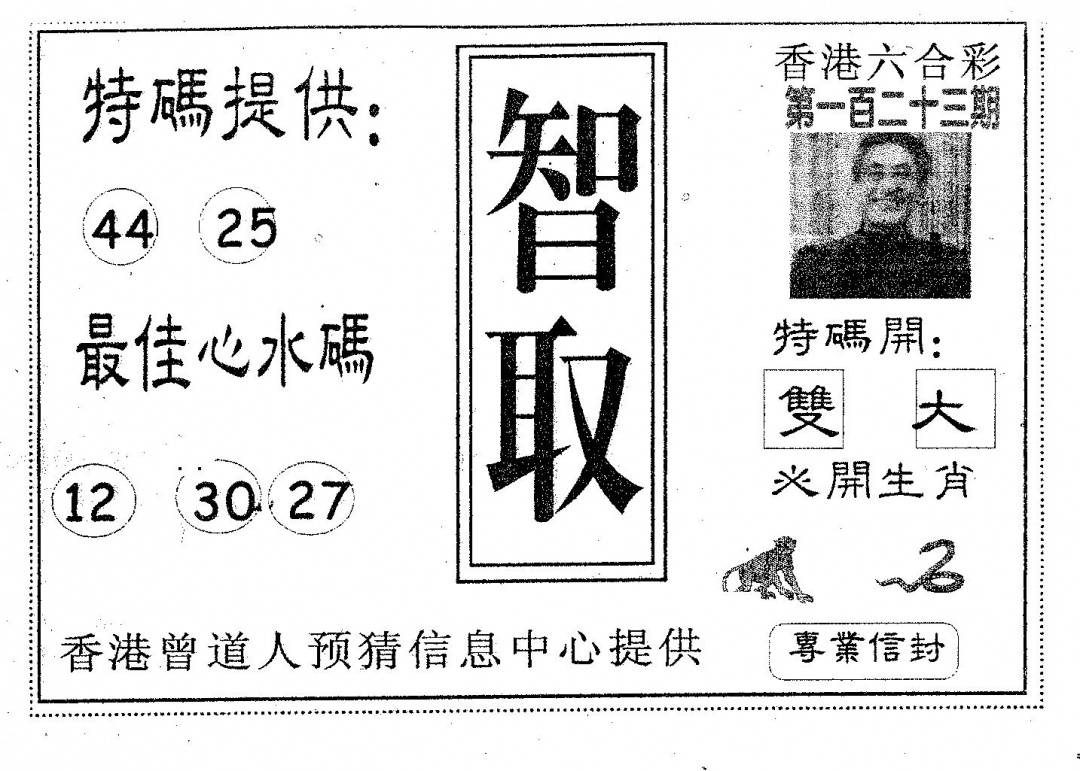 特碼提供：
44 25
最佳心水碼
12 30 27
智取
香港六合彩
第一百二十三期
特碼開：
雙 大
必開生肖
香港曾道人预猜信息中心提供
專業信封